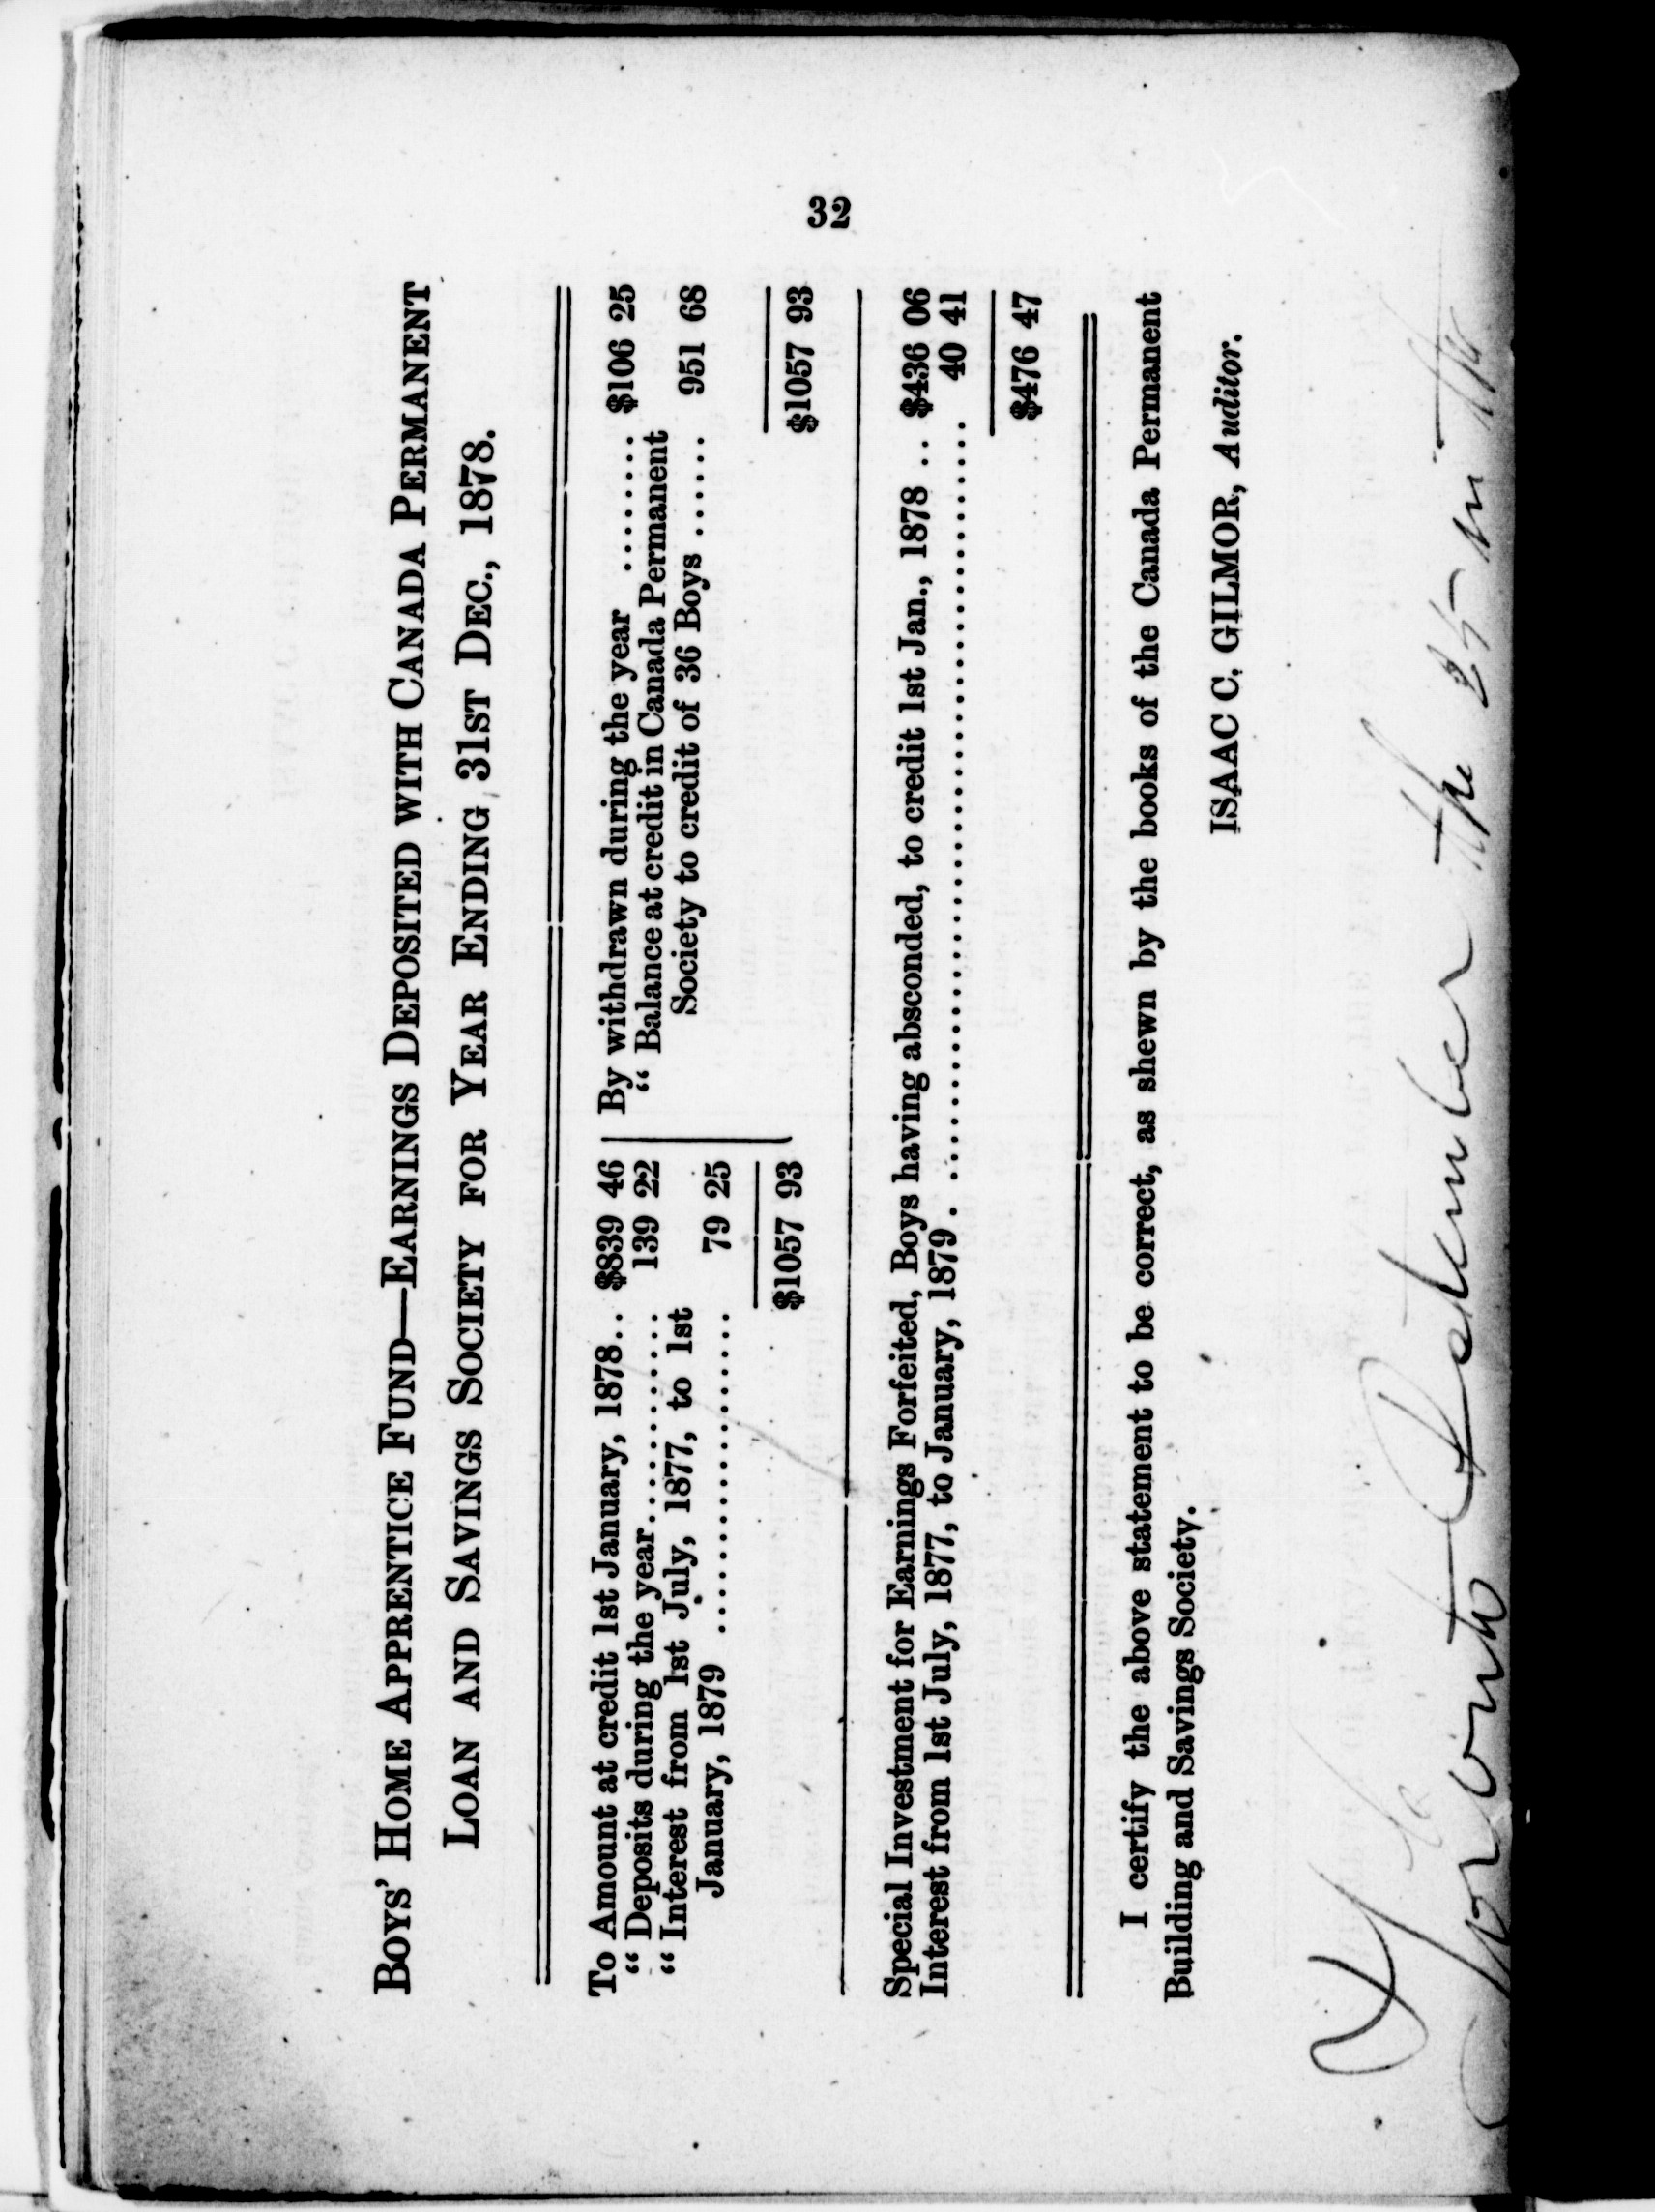 32
BOYS' HOME APPRENTICE FUND—EARNINGS DEPOSITED WITH CANADA PERMANENT
LOAN AND SAVINGS SOCIETY FOR YEAR ENDING 31ST DEC., 1878.
To Amount at credit 1st January, 1878.. $839 46
“ Deposits during the year............ 139 22
“ Interest from 1st July, 1877, to 1st
January, 1879 .................. 79 25
$1057 93
By withdrawn during the year ........ $106 25
“ Balance at credit in Canada Permanent
Society to credit of 36 Boys ...... 951 68
$1057 93
Special Investment for Earnings Forfeited, Boys having absconded, to credit 1st Jan., 1878 .. $436 06
Interest from 1st July, 1877, to January, 1879. .................................................. 40 41
$476 47
I certify the above statement to be correct, as shewn by the books of the Canada Permanent
Building and Savings Society.
ISAAC C. GILMOR, Auditor.
Toronto the 25